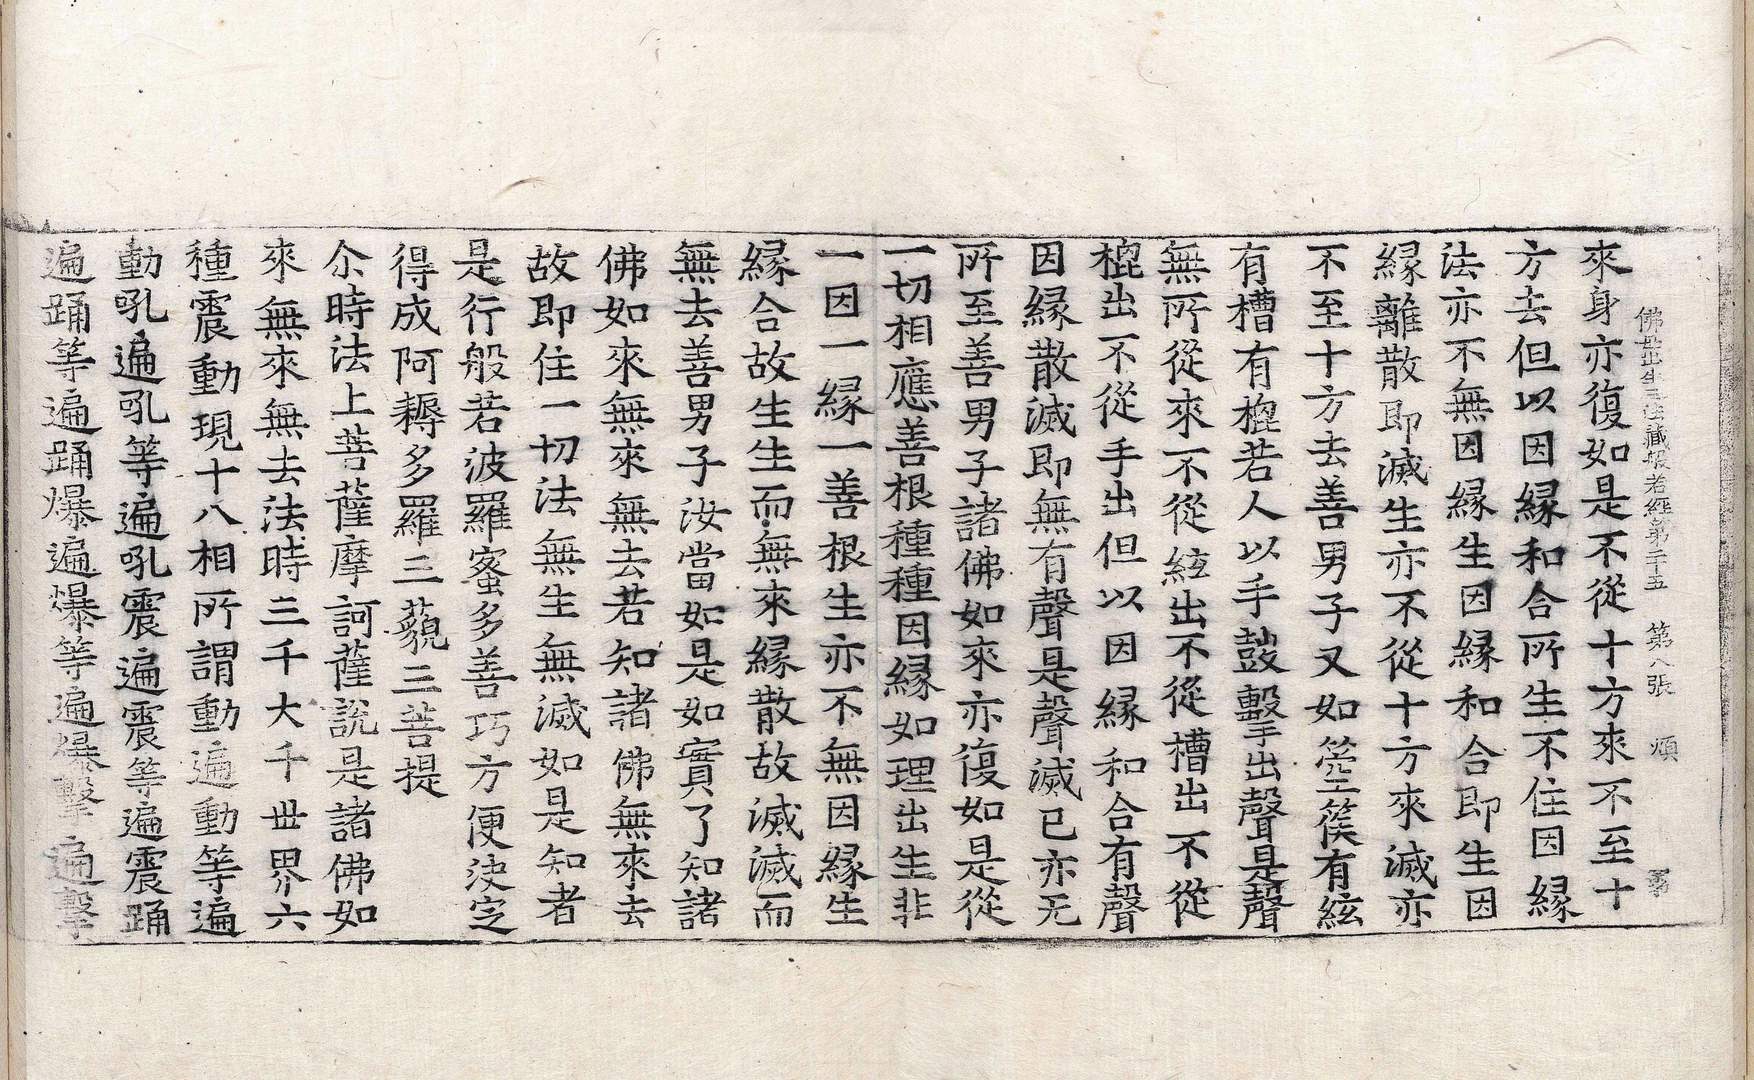 佛母出生三法藏般若經第二十五　第八張　煩
來身亦復如是不從十方來不至十
方去但以因緣和合所生不住因緣
法亦不無因緣生因緣和合即生因
緣離散即滅生亦不從十方來滅亦
不至十方去善男子又如箜篌有絃
有槽有棍若人以手鼓擊出聲是聲
無所從來不從絃出不從槽出不從
棍出不從手出但以因緣和合有聲
因緣散滅即無有聲是聲滅已亦无
所至善男子諸佛如來亦復如是從
一切相應善根種種因緣如理出生非
一因一緣一善根生亦不無因緣生
緣合故生生而無來緣散故滅滅而
無去善男子汝當如是如實了知諸
佛如來無來無去若知諸佛無來去
故即住一切法無生無滅如是知者
是行般若波羅蜜多善巧方便決定
得成阿耨多羅三藐三菩提
尒時法上菩薩摩訶薩說是諸佛如
來無來無去法時三千大千世界六
種震動現十八相所謂動遍動等遍
動吼遍吼等遍吼震遍震等遍震踊
遍踊等遍踊爆遍爆等遍爆擊遍擊